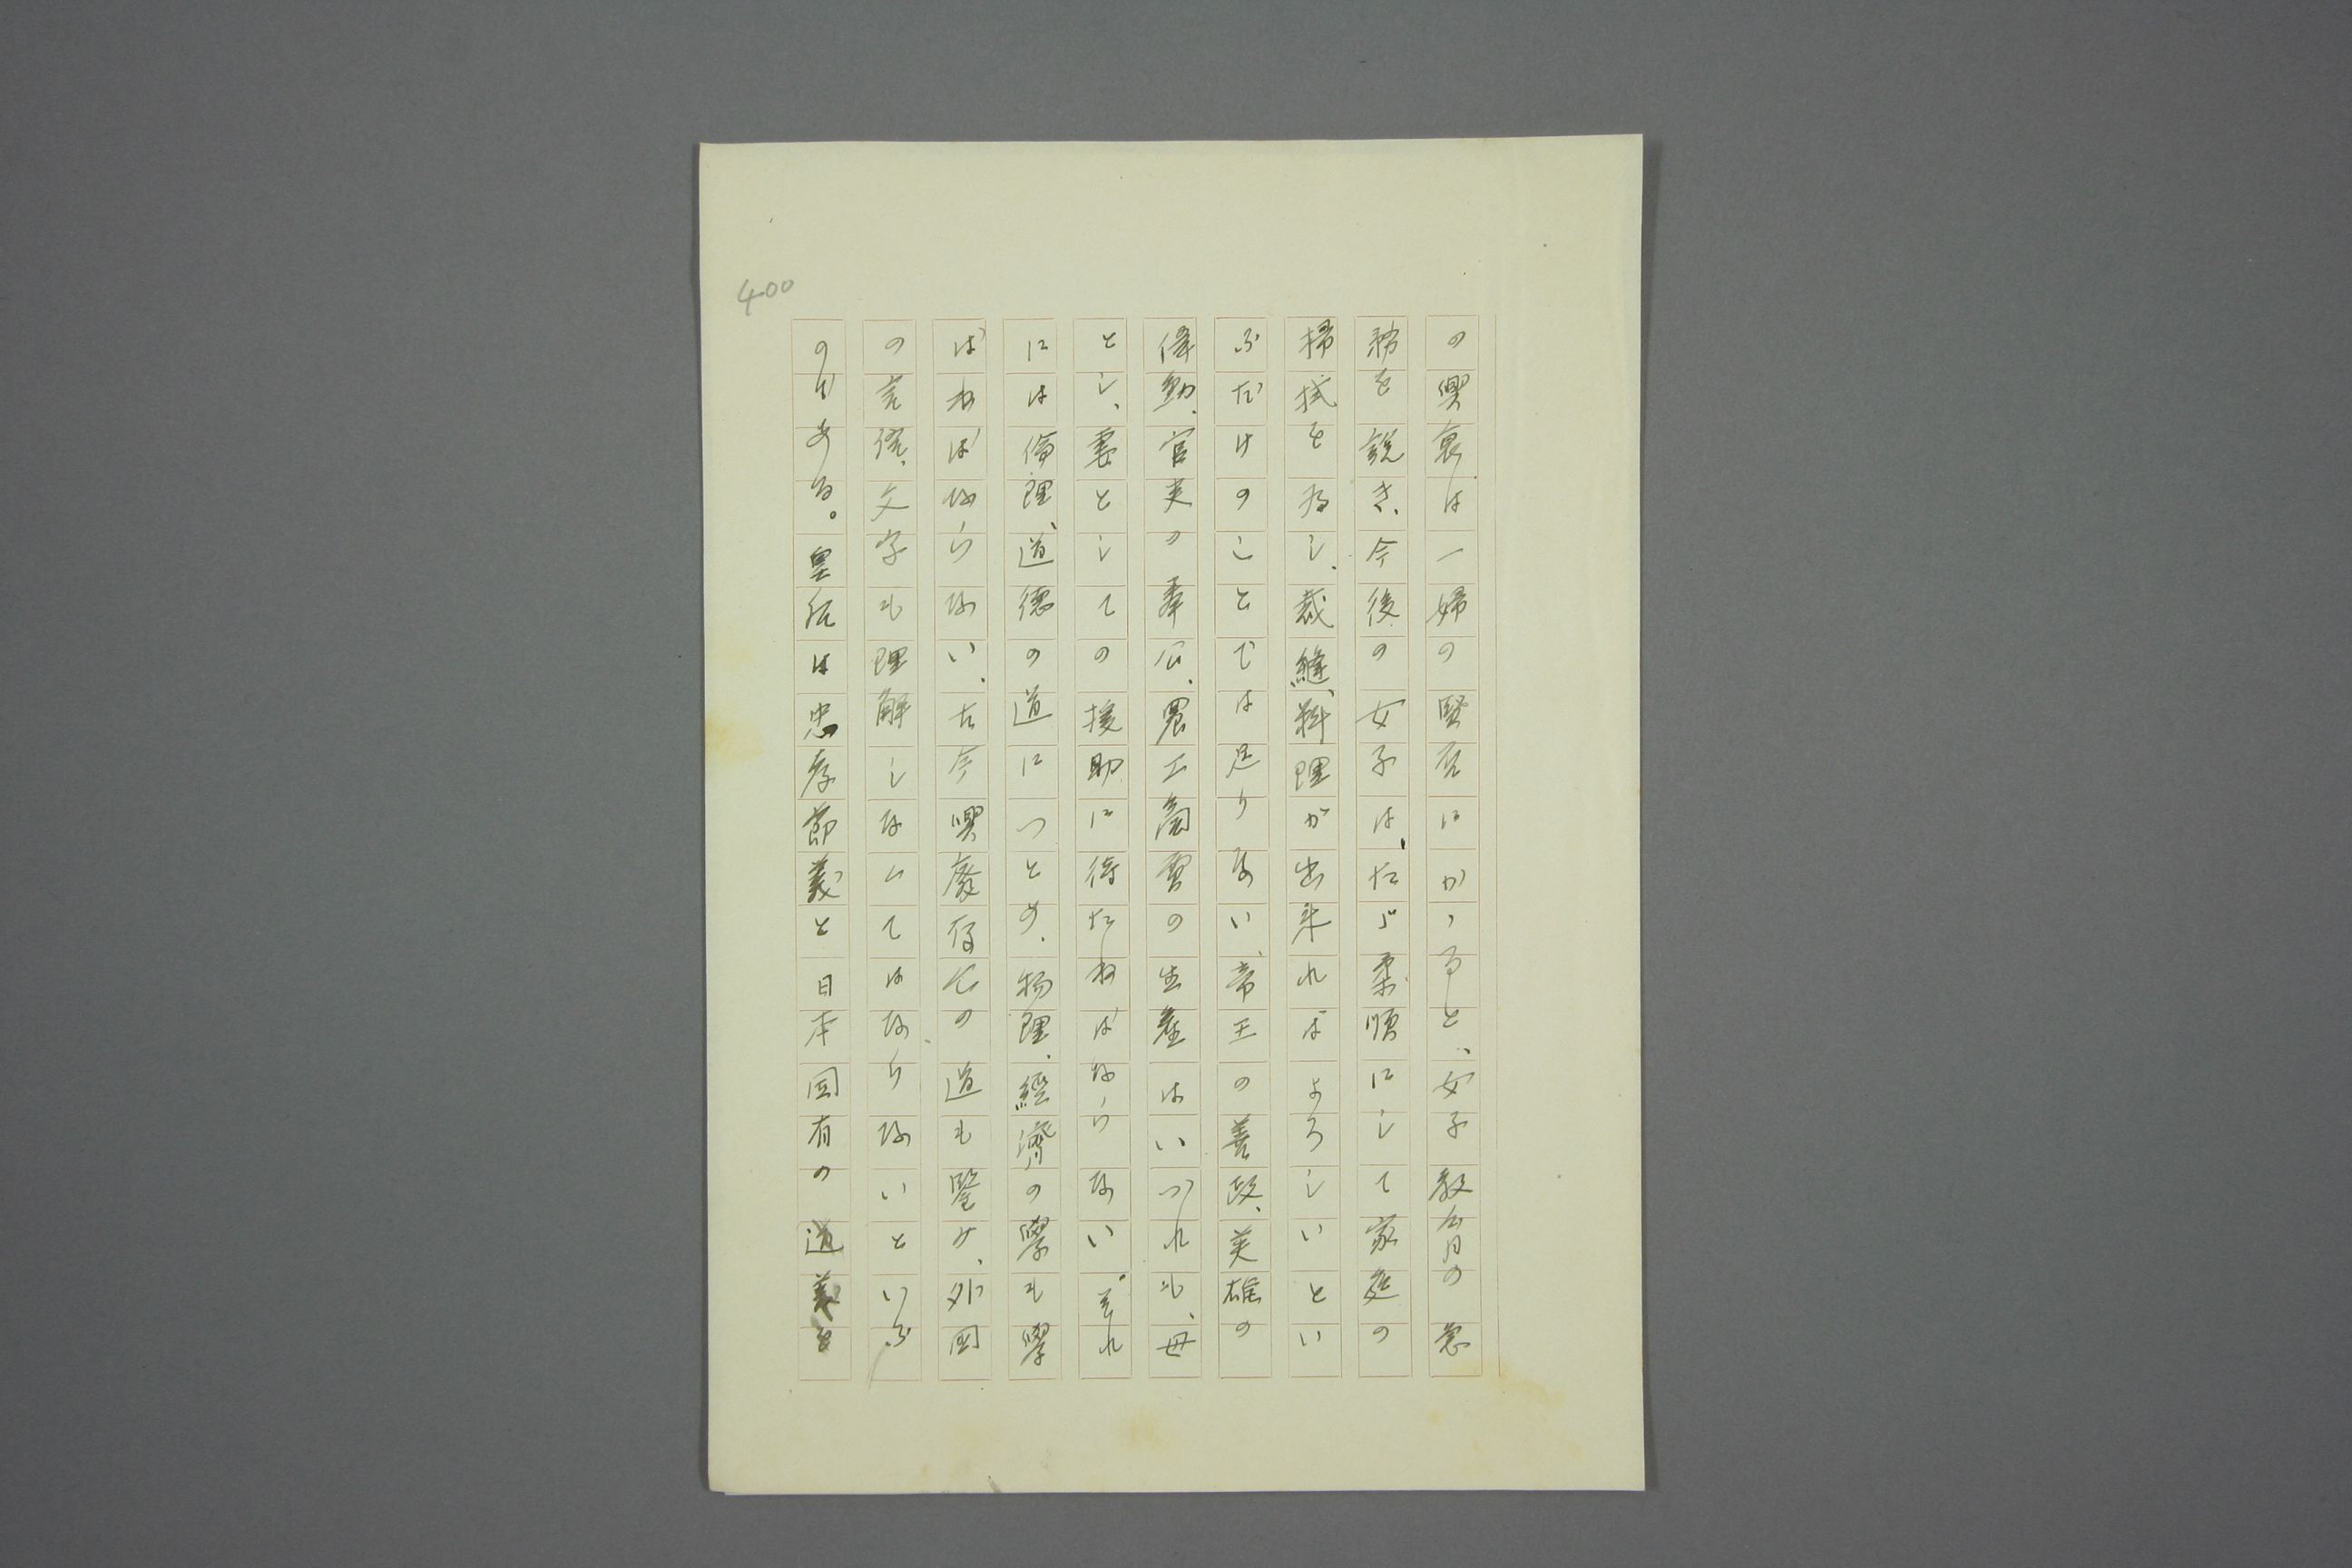 400
の興衰は一婦の賢否にかゝると、女子教育の急
務を説き、今後の女子は、たゞ柔順にして家庭の
掃拭を為し、裁縫、料理が出来ればよろしいとい
ふだけのことでは足りない、帝王の善政、英雄の
偉勲、官吏の奉公、農工商賈の生産はいづれも、母
とし、妻としての援助に待たねばならない。それ
には倫理、道徳の道につとめ、物理、經濟の學も學
ばねばならない、古今興廢存亡の道も鑒み、外国
の言儀、文字も理解しないてはならないといふ
のである。皇后は忠孝節義と日本固有の道義を